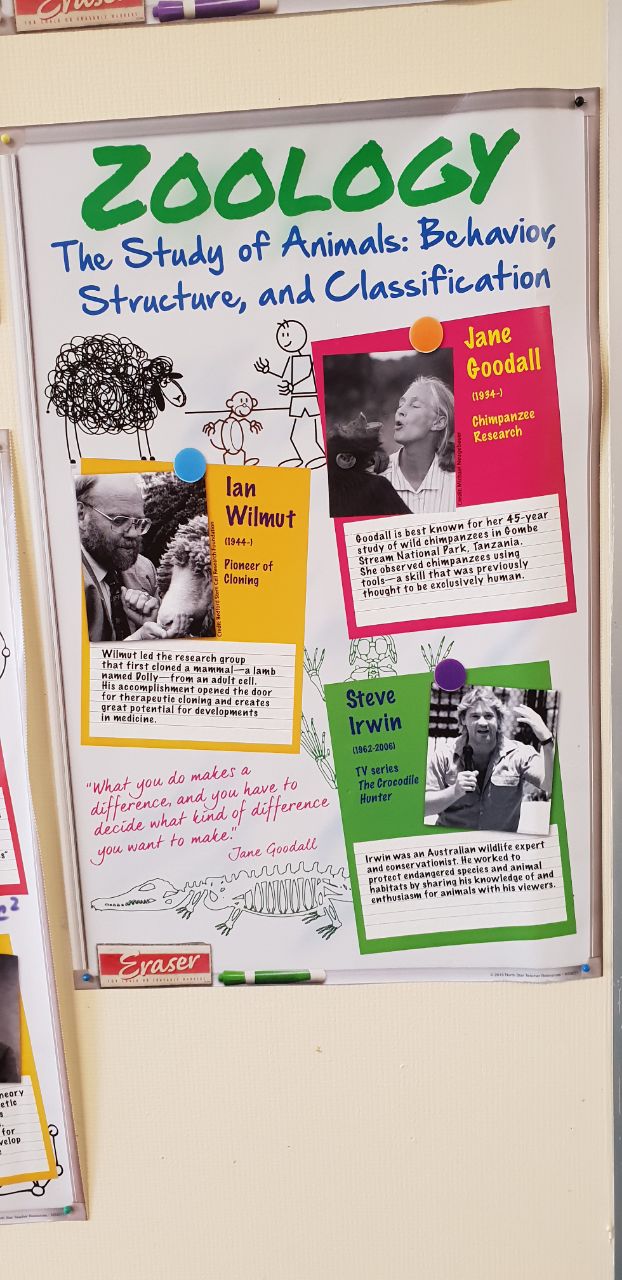 Eraser
ZOOLOGY
The Study of Animals: Behavior,
Structure, and Classification
Jane
Goodall
(1934-)
Chimpanzee
Research
Goodall is best known for her 45-year
study of wild chimpanzees in Gombe
Stream National Park, Tanzania.
She observed chimpanzees using
tools—a skill that was previously
thought to be exclusively human.
Ian
Wilmut
(1944-)
Pioneer of
Cloning
Wilmut led the research group
that first cloned a mammal—a lamb
named Dolly—from an adult cell.
His accomplishment opened the door
for therapeutic cloning and creates
great potential for developments
in medicine.
Steve
Irwin
(1962-2006)
TV series
The Crocodile
Hunter
Irwin was an Australian wildlife expert
and conservationist. He worked to
protect endangered species and animal
habitats by sharing his knowledge of and
enthusiasm for animals with his viewers.
"What you do makes a
difference, and you have to
decide what kind of difference
you want to make."
Jane Goodall
Eraser
for